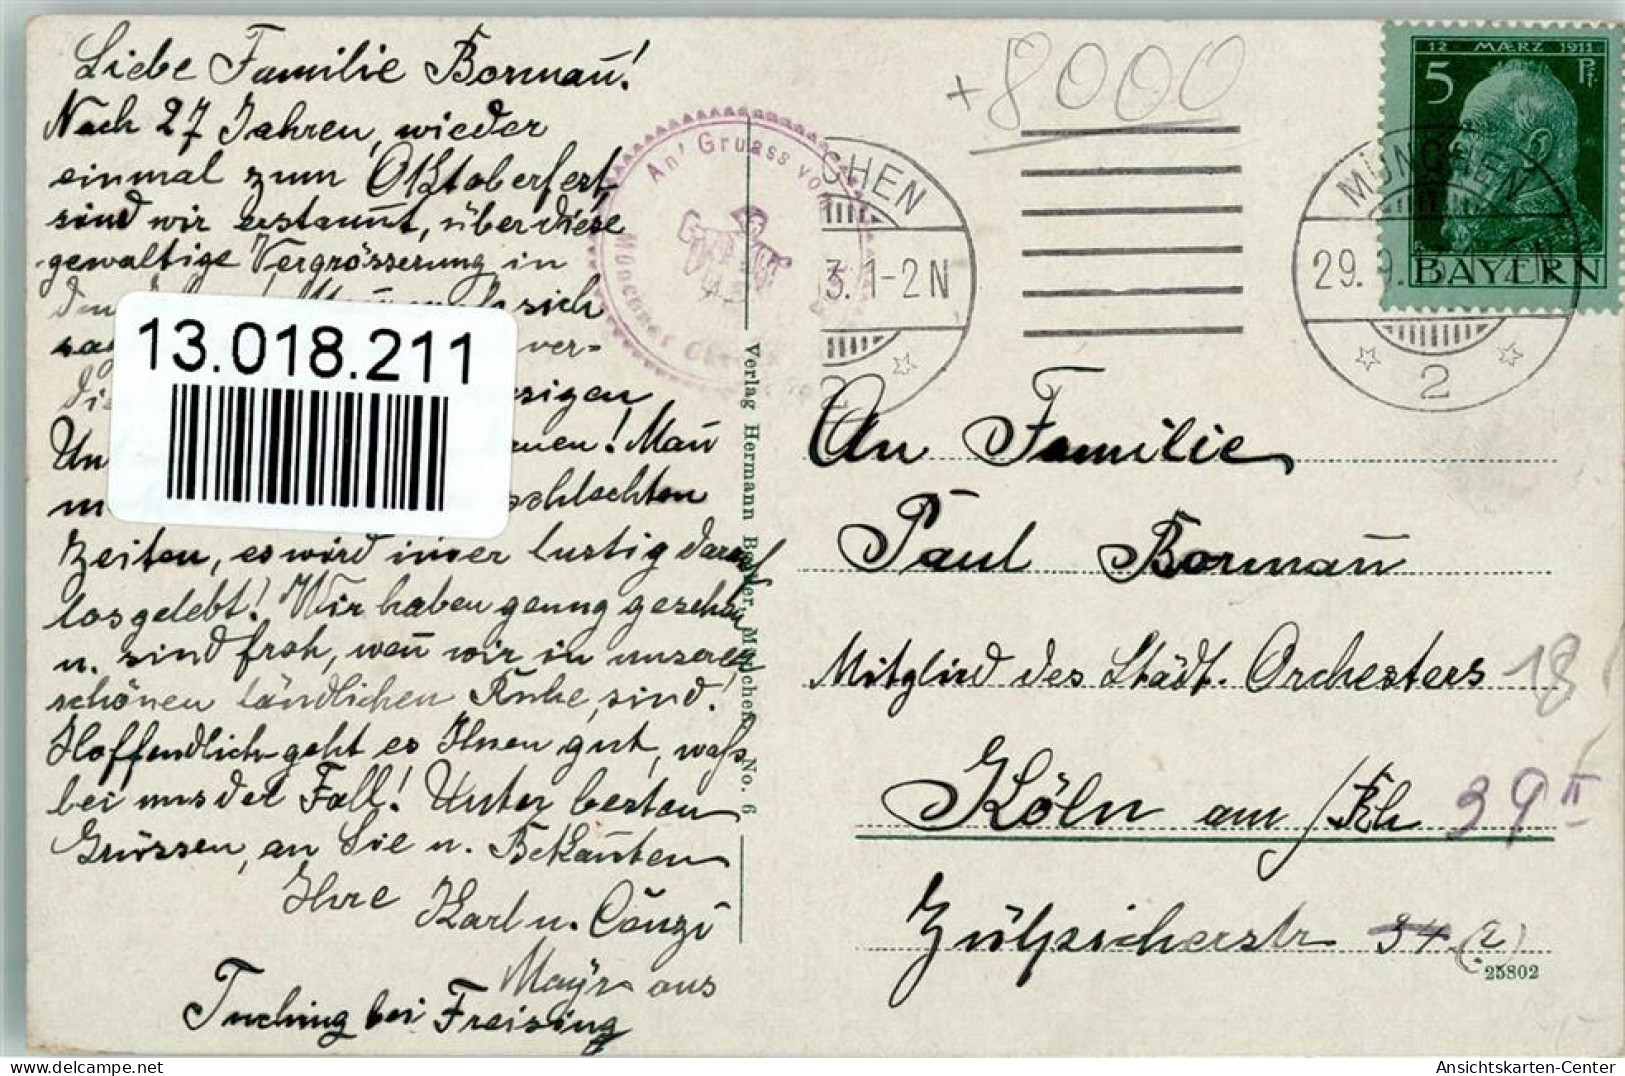 Liebe Familie Bormañ!
Nach 27 Jahren, wieder
einmal zum Oktoberfest,
sind wir erstauñt, über diese
gewaltige Vergrösserung in
sich
ver-
esigen
Un
! Mañ
schlechten
Zeiten, es wird imer lustig darauf
losgelebt! Wir haben genug gesehen
u. sind froh, weñ wir in unserer
schönen ländlichen Ruhe, sind!
Hoffendlich geht es Ihnen gut, was
bei uns der Fall! Unter besten
Grüssen, an Sie u. Bekañten
Ihre
Karl u. Cänzi
Mayr aus
Tuching bei Freising
13.018.211
An' Gruass vom
Münchner
Verlag Hermann München No. 6
+8000
CHEN
3. 1-2 N
2
MÜNCHEN
29. 9.
2
12 MÆRZ 1911
5 Pf.
BAYERN
An Familie
Paul Bormañ
Mitglied des Städt. Orchesters
18
Köln am /Rh
39 II
Zülpicherstr 34 (2)
25802
AnsichtsKarten-Center